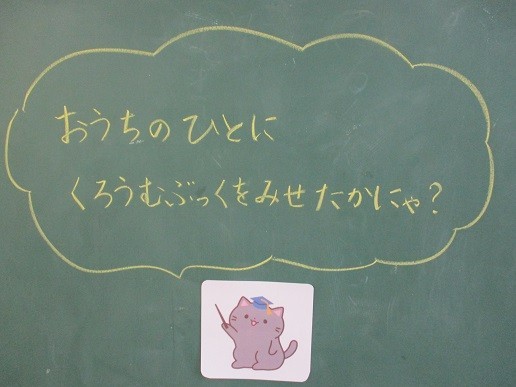 おうちのひとに
くろうむぶっくをみせたかにゃ？